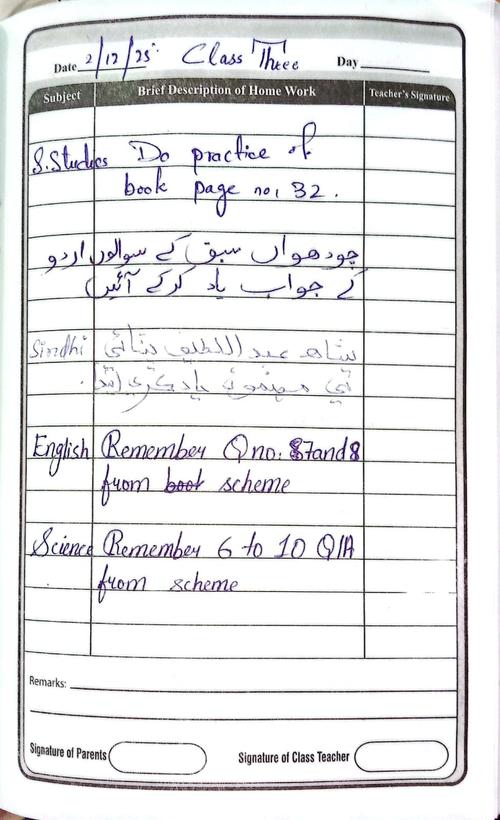 Date 2/12/25 Class Three Day
Subject Brief Description of Home Work Teacher's Signature
S.Studies Do practice of
book page no, 32.
اردو چودھواں سبق کے سوالوں
کے جواب یاد کرکے آئیں
Sindhi شاھ عبداللطيف ڀٽائي
تي مضمون ياد ڪري
English Remember Q no: 7and8
from scheme
Science Remember 6 to 10 Q/A
from scheme
Remarks:
Signature of Parents Signature of Class Teacher